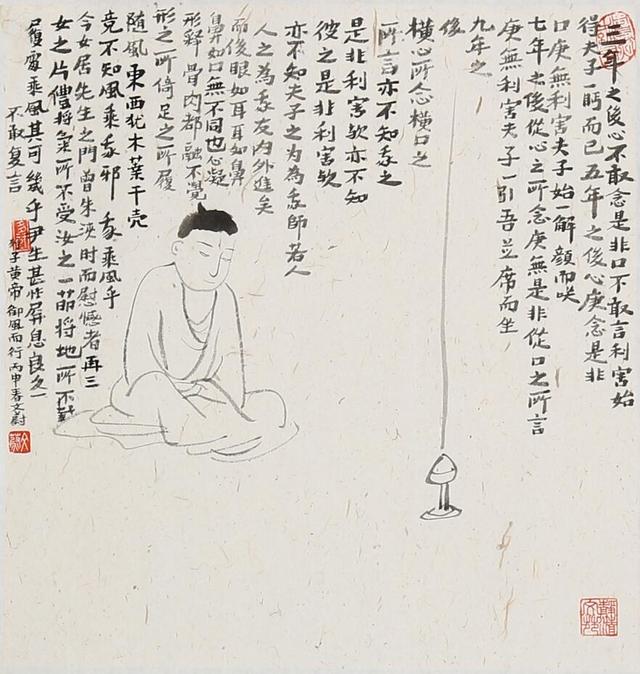 三年之後心不敢念是非口不敢言利害始
得夫子一眄而已五年之後心庚念是非
口庚無利害夫子始一解顏而咲
七年之後從心之所念庚無是非從口之所言
庚無利害夫子一引吾並席而坐
九年之
後
橫心所念橫口之
所言亦不知我之
是非利害歟亦不知
彼之是非利害歟
亦不知夫子之为為我師若人
人之為我友內外進矣
而後眼如耳耳如鼻
鼻如口無不同也心凝
形釋骨肉都融不覺
形之所倚足之所履
隨風東西犹木葉干壳
竟不知風乘我邪我乘風乎
今女居先生之門曾未浹时而慰憾者再三
女之片體將氣所不受汝之一節將地所不載
履虛乘風其可幾乎尹生甚怍屏息良久
不敢复言
列子黄帝御風而行丙申春文尉